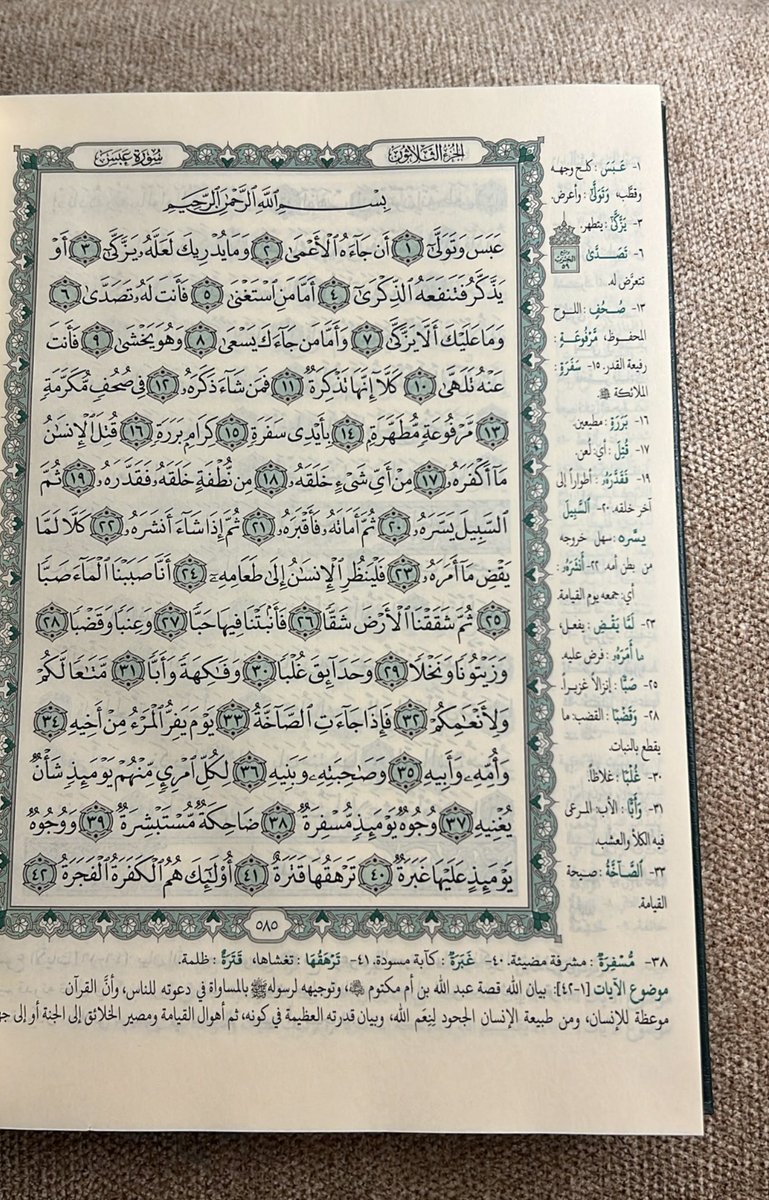 الجزء الثلاثون
سورة عبس
بِسْمِ ٱللَّهِ ٱلرَّحْمَٰنِ ٱلرَّحِيمِ
عَبَسَ وَتَوَلَّىٰٓ ١ أَن جَآءَهُ ٱلْأَعْمَىٰ ٢ وَمَا يُدْرِيكَ لَعَلَّهُۥ يَزَّكَّىٰٓ ٣ أَوْ
يَذَّكَّرُ فَتَنفَعَهُ ٱلذِّكْرَىٰٓ ٤ أَمَّا مَنِ ٱسْتَغْنَىٰ ٥ فَأَنتَ لَهُۥ تَصَدَّىٰ ٦
وَمَا عَلَيْكَ أَلَّا يَزَّكَّىٰ ٧ وَأَمَّا مَن جَآءَكَ يَسْعَىٰ ٨ وَهُوَ يَخْشَىٰ ٩ فَأَنتَ
عَنْهُ تَلَهَّىٰ ١٠ كَلَّآ إِنَّهَا تَذْكِرَةٌ ١١ فَمَن شَآءَ ذَكَرَهُۥ ١٢ فِى صُحُفٍ مُّكَرَّمَةٍ
١٣ مَّرْفُوعَةٍ مُّطَهَّرَةٍۭ ١٤ بِأَيْدِى سَفَرَةٍ ١٥ كِرَامٍۭ بَرَرَةٍ ١٦ قُتِلَ ٱلْإِنسَٰنُ
مَآ أَكْفَرَهُۥ ١٧ مِنْ أَىِّ شَىْءٍ خَلَقَهُۥ ١٨ مِن نُّطْفَةٍ خَلَقَهُۥ فَقَدَّرَهُۥ ١٩ ثُمَّ
ٱلسَّبِيلَ يَسَّرَهُۥ ٢٠ ثُمَّ أَمَاتَهُۥ فَأَقْبَرَهُۥ ٢١ ثُمَّ إِذَا شَآءَ أَنشَرَهُۥ ٢٢ كَلَّا لَمَّا
يَقْضِ مَآ أَمَرَهُۥ ٢٣ فَلْيَنظُرِ ٱلْإِنسَٰنُ إِلَىٰ طَعَامِهِۦٓ ٢٤ أَنَّا صَبَبْنَا ٱلْمَآءَ صَبًّا
٢٥ ثُمَّ شَقَقْنَا ٱلْأَرْضَ شَقًّا ٢٦ فَأَنۢبَتْنَا فِيهَا حَبًّا ٢٧ وَعِنَبًا وَقَضْبًا ٢٨
وَزَيْتُونًا وَنَخْلًا ٢٩ وَحَدَآئِقَ غُلْبًا ٣٠ وَفَٰكِهَةً وَأَبًّا ٣١ مَّتَٰعًا لَّكُمْ
وَلِأَنْعَٰمِكُمْ ٣٢ فَإِذَا جَآءَتِ ٱلصَّآخَّةُ ٣٣ يَوْمَ يَفِرُّ ٱلْمَرْءُ مِنْ أَخِيهِ ٣٤
وَأُمِّهِۦ وَأَبِيهِ ٣٥ وَصَٰحِبَتِهِۦ وَبَنِيهِ ٣٦ لِكُلِّ ٱمْرِئٍ مِّنْهُمْ يَوْمَئِذٍ شَأْنٌ
يُغْنِيهِ ٣٧ وُجُوهٌ يَوْمَئِذٍ مُّسْفِرَةٌ ٣٨ ضَاحِكَةٌ مُّسْتَبْشِرَةٌ ٣٩ وَوُجُوهٌ
يَوْمَئِذٍ عَلَيْهَا غَبَرَةٌ ٤٠ تَرْهَقُهَا قَتَرَةٌ ٤١ أُو۟لَٰٓئِكَ هُمُ ٱلْكَفَرَةُ ٱلْفَجَرَةُ ٤٢
٥٨٥
١- عَبَسَ : كلح وجهه
وقطَّب، وَتَوَلَّىٰٓ : وأعرض.
٣- يَزَّكَّىٰٓ : يتطهر.
٦- تَصَدَّىٰ :
تتعرَّض له.
١٣- صُحُفٍ : اللوح
المحفوظ، مَرْفُوعَةٍ :
رفيعة القدر. ١٥- سَفَرَةٍ :
الملائكة
١٦- بَرَرَةٍ : مطيعين.
١٧- قُتِلَ : أي: لُعن.
١٩- فَقَدَّرَهُۥ : أطواراً إلى
آخر خلقه. ٢٠- السَّبِيلَ
يسَّره : سهل خروجه
من بطن أمه. ٢٢- أَنشَرَهُۥ :
أي: جمعه يوم القيامة.
٢٣- لَمَّا يَقْضِ : يفعل،
ما أَمَرَهُۥ : فرض عليه.
٢٥- صَبًّا : إنزالاً غزيراً.
٢٨- وَقَضْبًا : القضب: ما
يقطع بالنبات.
٣٠- غُلْبًا : غلاظاً.
٣١- وَأَبًّا : الأب: المرعى
فيه الكلأ والعشب.
٣٣- ٱلصَّآخَّةُ : صيحة
القيامة.
٣٨- مُّسْفِرَةٌ : مشرقة مضيئة. ٤٠- غَبَرَةٌ : كآبة مسودة. ٤١- تَرْهَقُهَا : تغشاها، قَتَرَةٌ : ظلمة.
موضوع الآيات [١-٤٢]: بيان الله قصة عبد الله بن أم مكتوم، وتوجيهه لرسوله ﷺ بالمساواة في دعوته للناس، وأنَّ القرآن
موعظة للإنسان، ومن طبيعة الإنسان الجحود لنِعَم الله، وبيان قدرته العظيمة في كونه، ثم أهوال القيامة ومصير الخلائق إلى الجنة أو إلى